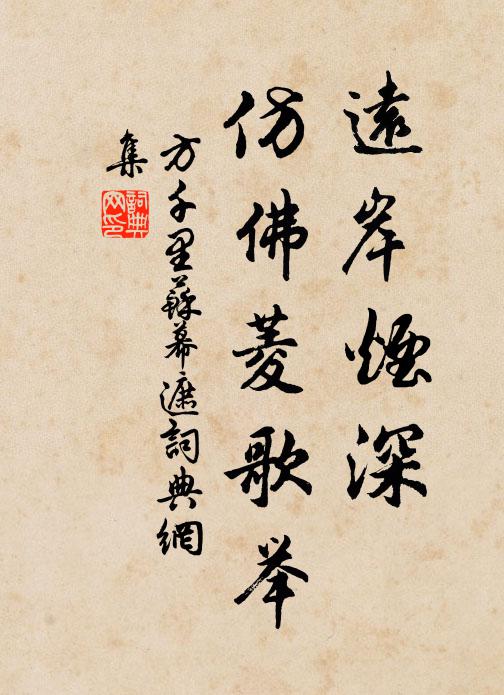 遠岸煙深
仿佛菱歌举
方千里蘇幕遮詞典網
集
詞典网印